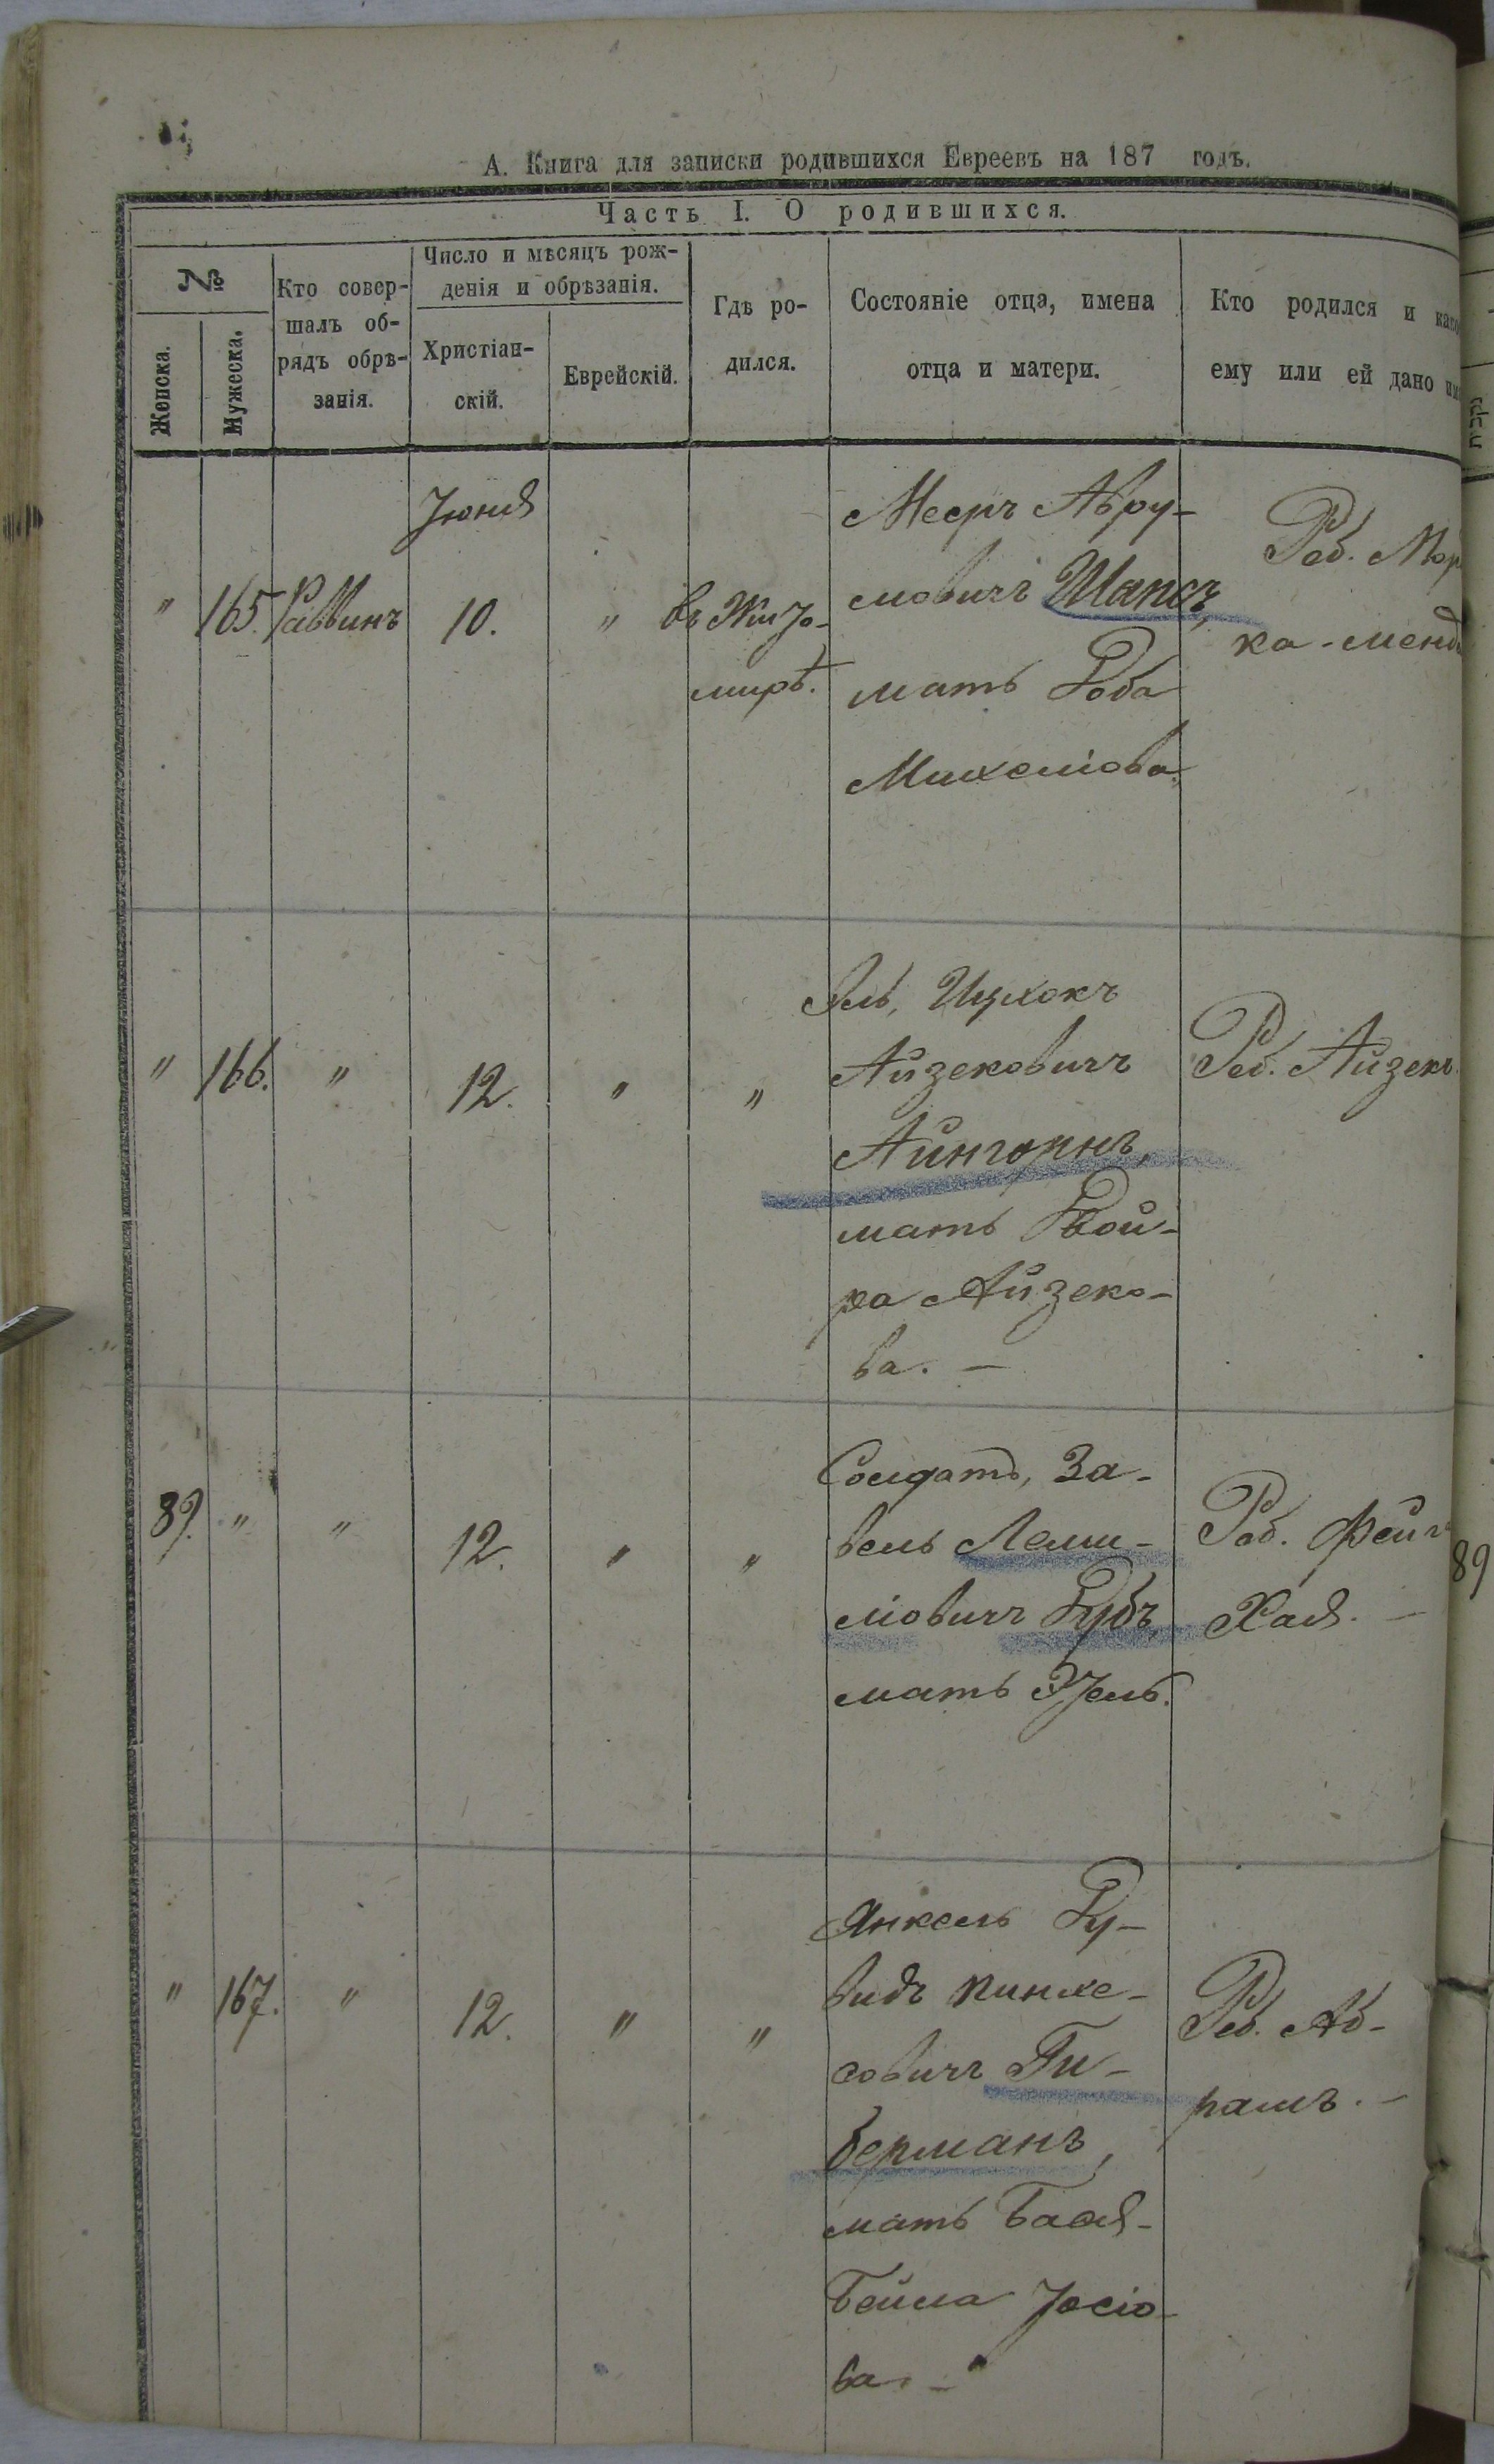 А. Книга для записки родившихся Евреевъ на 187 годъ.
Часть I. О родившихся.
№
Женска.
Мужеска.
Кто совер-
шалъ об-
рядъ обрѣ-
занія.
Число и мѣсяцъ рож-
денія и обрѣзанія.
Христіан-
скій.
Еврейскій.
Гдѣ ро-
дился.
Состояніе отца, имена
отца и матери.
Кто родился и како
ему или ей дано им
" 165. Раввинъ
Іюня
10.
"
въ Жито-
мирѣ.
Мееръ Абру-
мовичъ Шапсъ,
мать Роба
Михеліова.
Реб. Мор
ка-менд
" 166. " 12. " "
Ицхокъ
Айзековичъ
Айнгорнъ,
мать Двой-
ра Айзеко-
ва. —
Реб. Айзекъ.
89. " " 12. " "
Солдатъ, За-
вель
міовичъ Губъ,
мать Этель.
Реб. Фейга
Хая. —
89
" 167. " 12. " "
Янкель Ду-
видъ Пинхе-
совичъ Ги-
берманъ,
мать Бася-
Бейла Іосіо-
ва. —
Реб. Аб-
рамъ. —